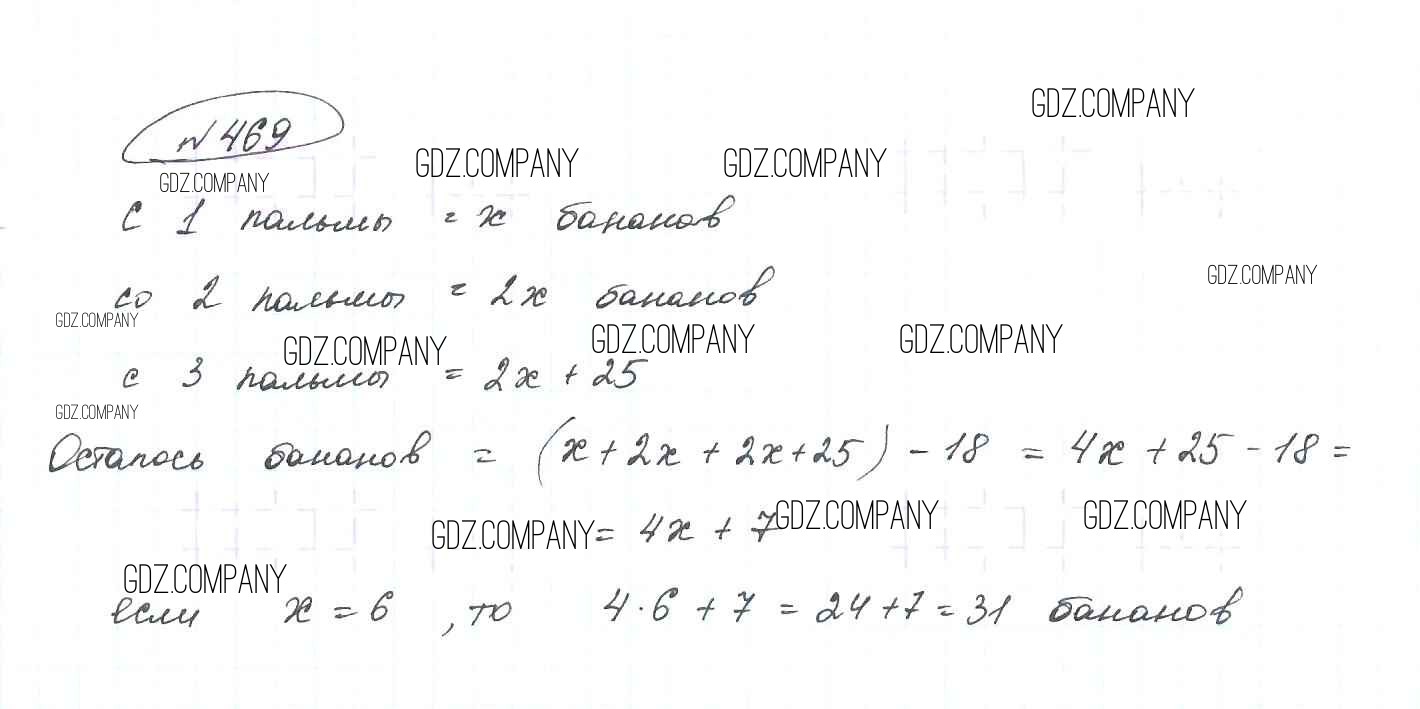 GDZ.COMPANY
№ 469
GDZ.COMPANY GDZ.COMPANY
GDZ.COMPANY
С 1 пальмы = x бананов
со 2 пальмы = 2x бананов
GDZ.COMPANY
GDZ.COMPANY
GDZ.COMPANY GDZ.COMPANY GDZ.COMPANY
с 3 пальмы = 2x + 25
GDZ.COMPANY
Осталось бананов = (x + 2x + 2x + 25) - 18 = 4x + 25 - 18 =
GDZ.COMPANY = 4x + 7 GDZ.COMPANY GDZ.COMPANY
GDZ.COMPANY
если x = 6 , то 4 · 6 + 7 = 24 + 7 = 31 бананов